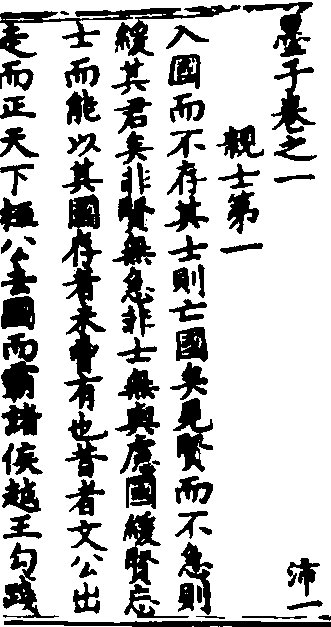 墨子卷之一
沛一
親士第一
入國而不存其士則亡國矣見賢而不急則
緩其君矣非賢無急非士無與慮國緩賢忘
士而能以其國存者未曾有也昔者文公出
走而正天下桓公去國而霸諸侯越王勾踐